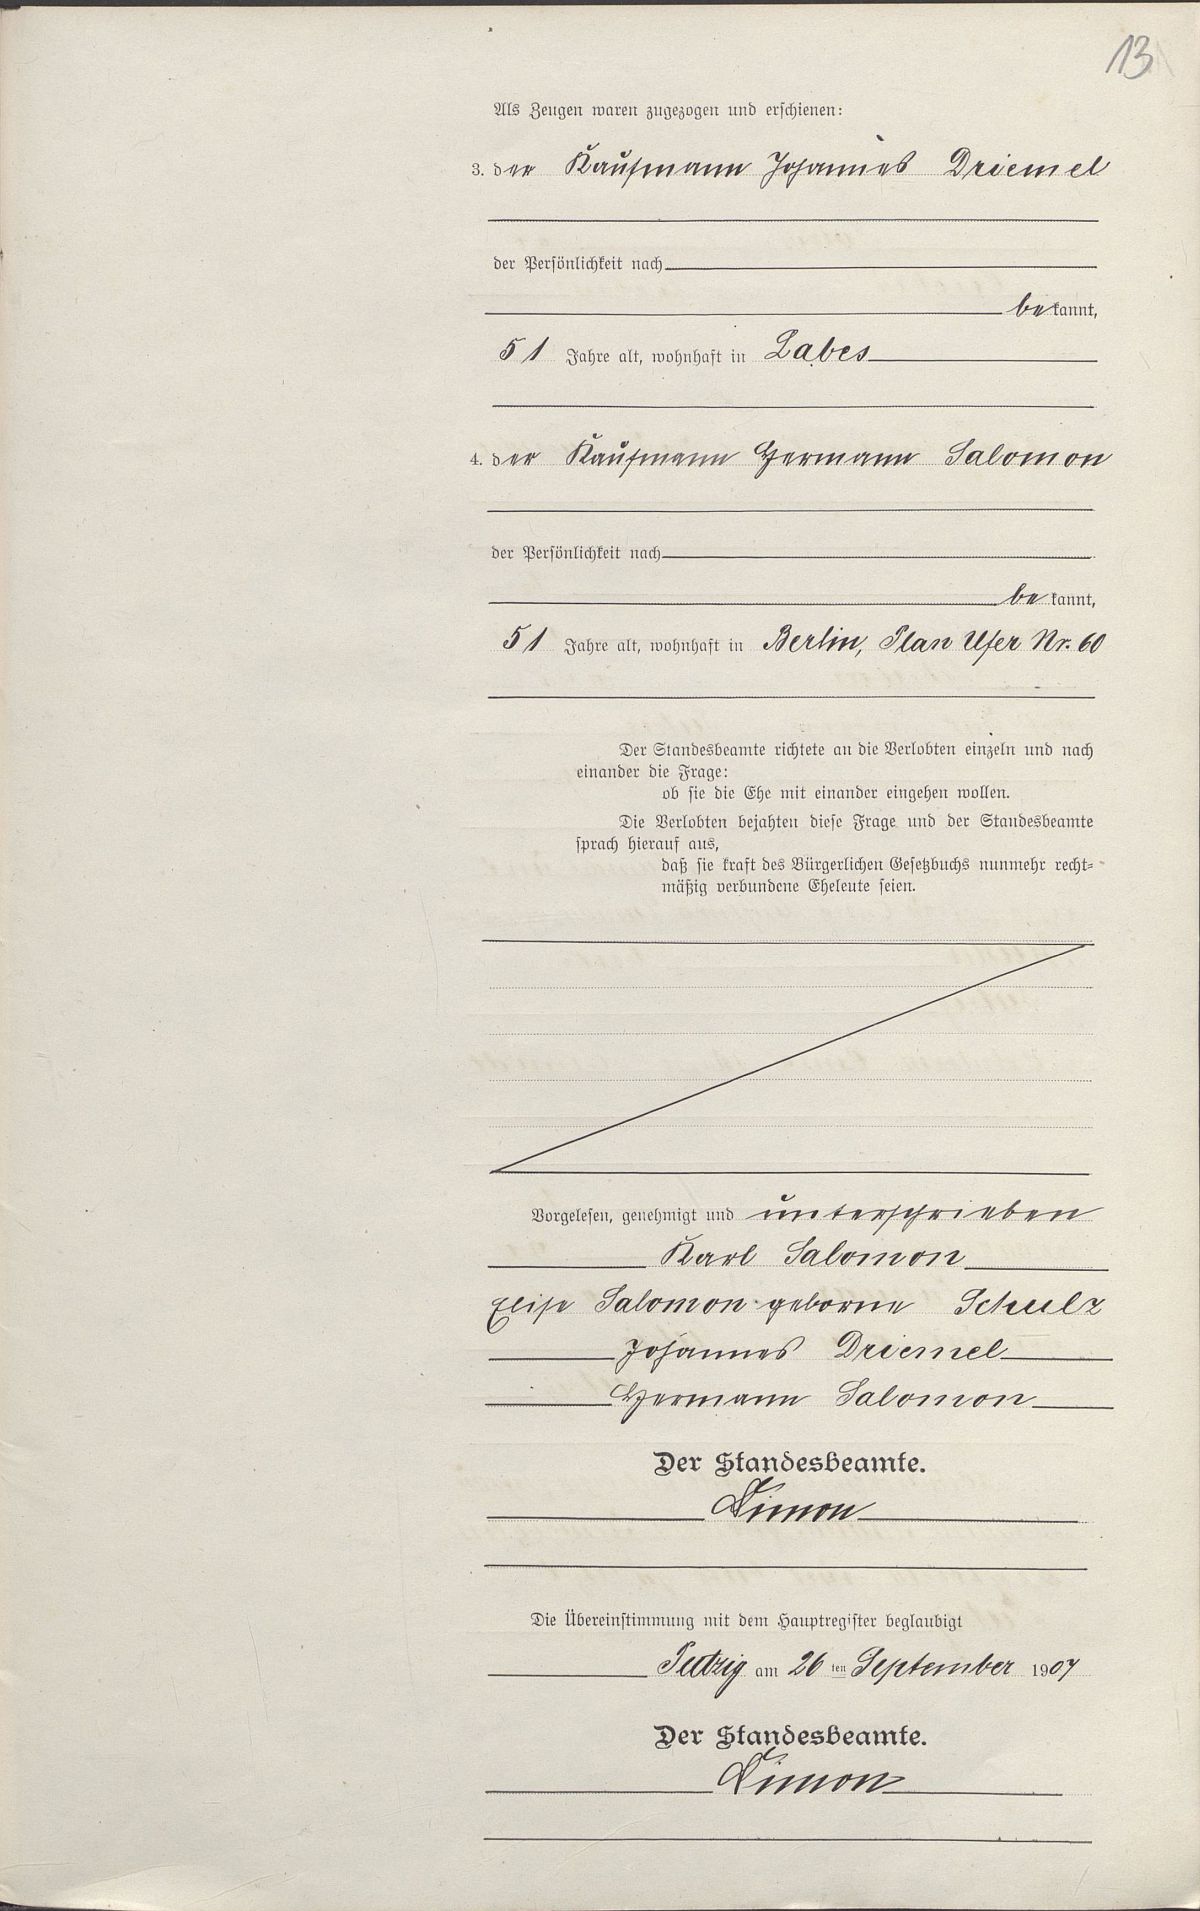 13
Als Zeugen waren zugezogen und erschienen:
3. der Kaufmann Johannes Driemel
der Persönlichkeit nach
bekannt,
51 Jahre alt, wohnhaft in Labes
4. der Kaufmann Hermann Salomon
der Persönlichkeit nach
bekannt,
51 Jahre alt, wohnhaft in Berlin, Plan Ufer Nr. 60
Der Standesbeamte richtete an die Verlobten einzeln und nach
einander die Frage:
ob sie die Ehe mit einander eingehen wollen.
Die Verlobten bejahten diese Frage und der Standesbeamte
sprach hierauf aus,
daß sie kraft des Bürgerlichen Gesetzbuchs nunmehr recht-
mäßig verbundene Eheleute seien.
Vorgelesen, genehmigt und unterschrieben
Karl Salomon
Elise Salomon geborne Schulz
Johannes Driemel
Hermann Salomon
Der Standesbeamte.
Die Übereinstimmung mit dem Hauptregister beglaubigt
Putzig am 26 ten September 1907
Der Standesbeamte.